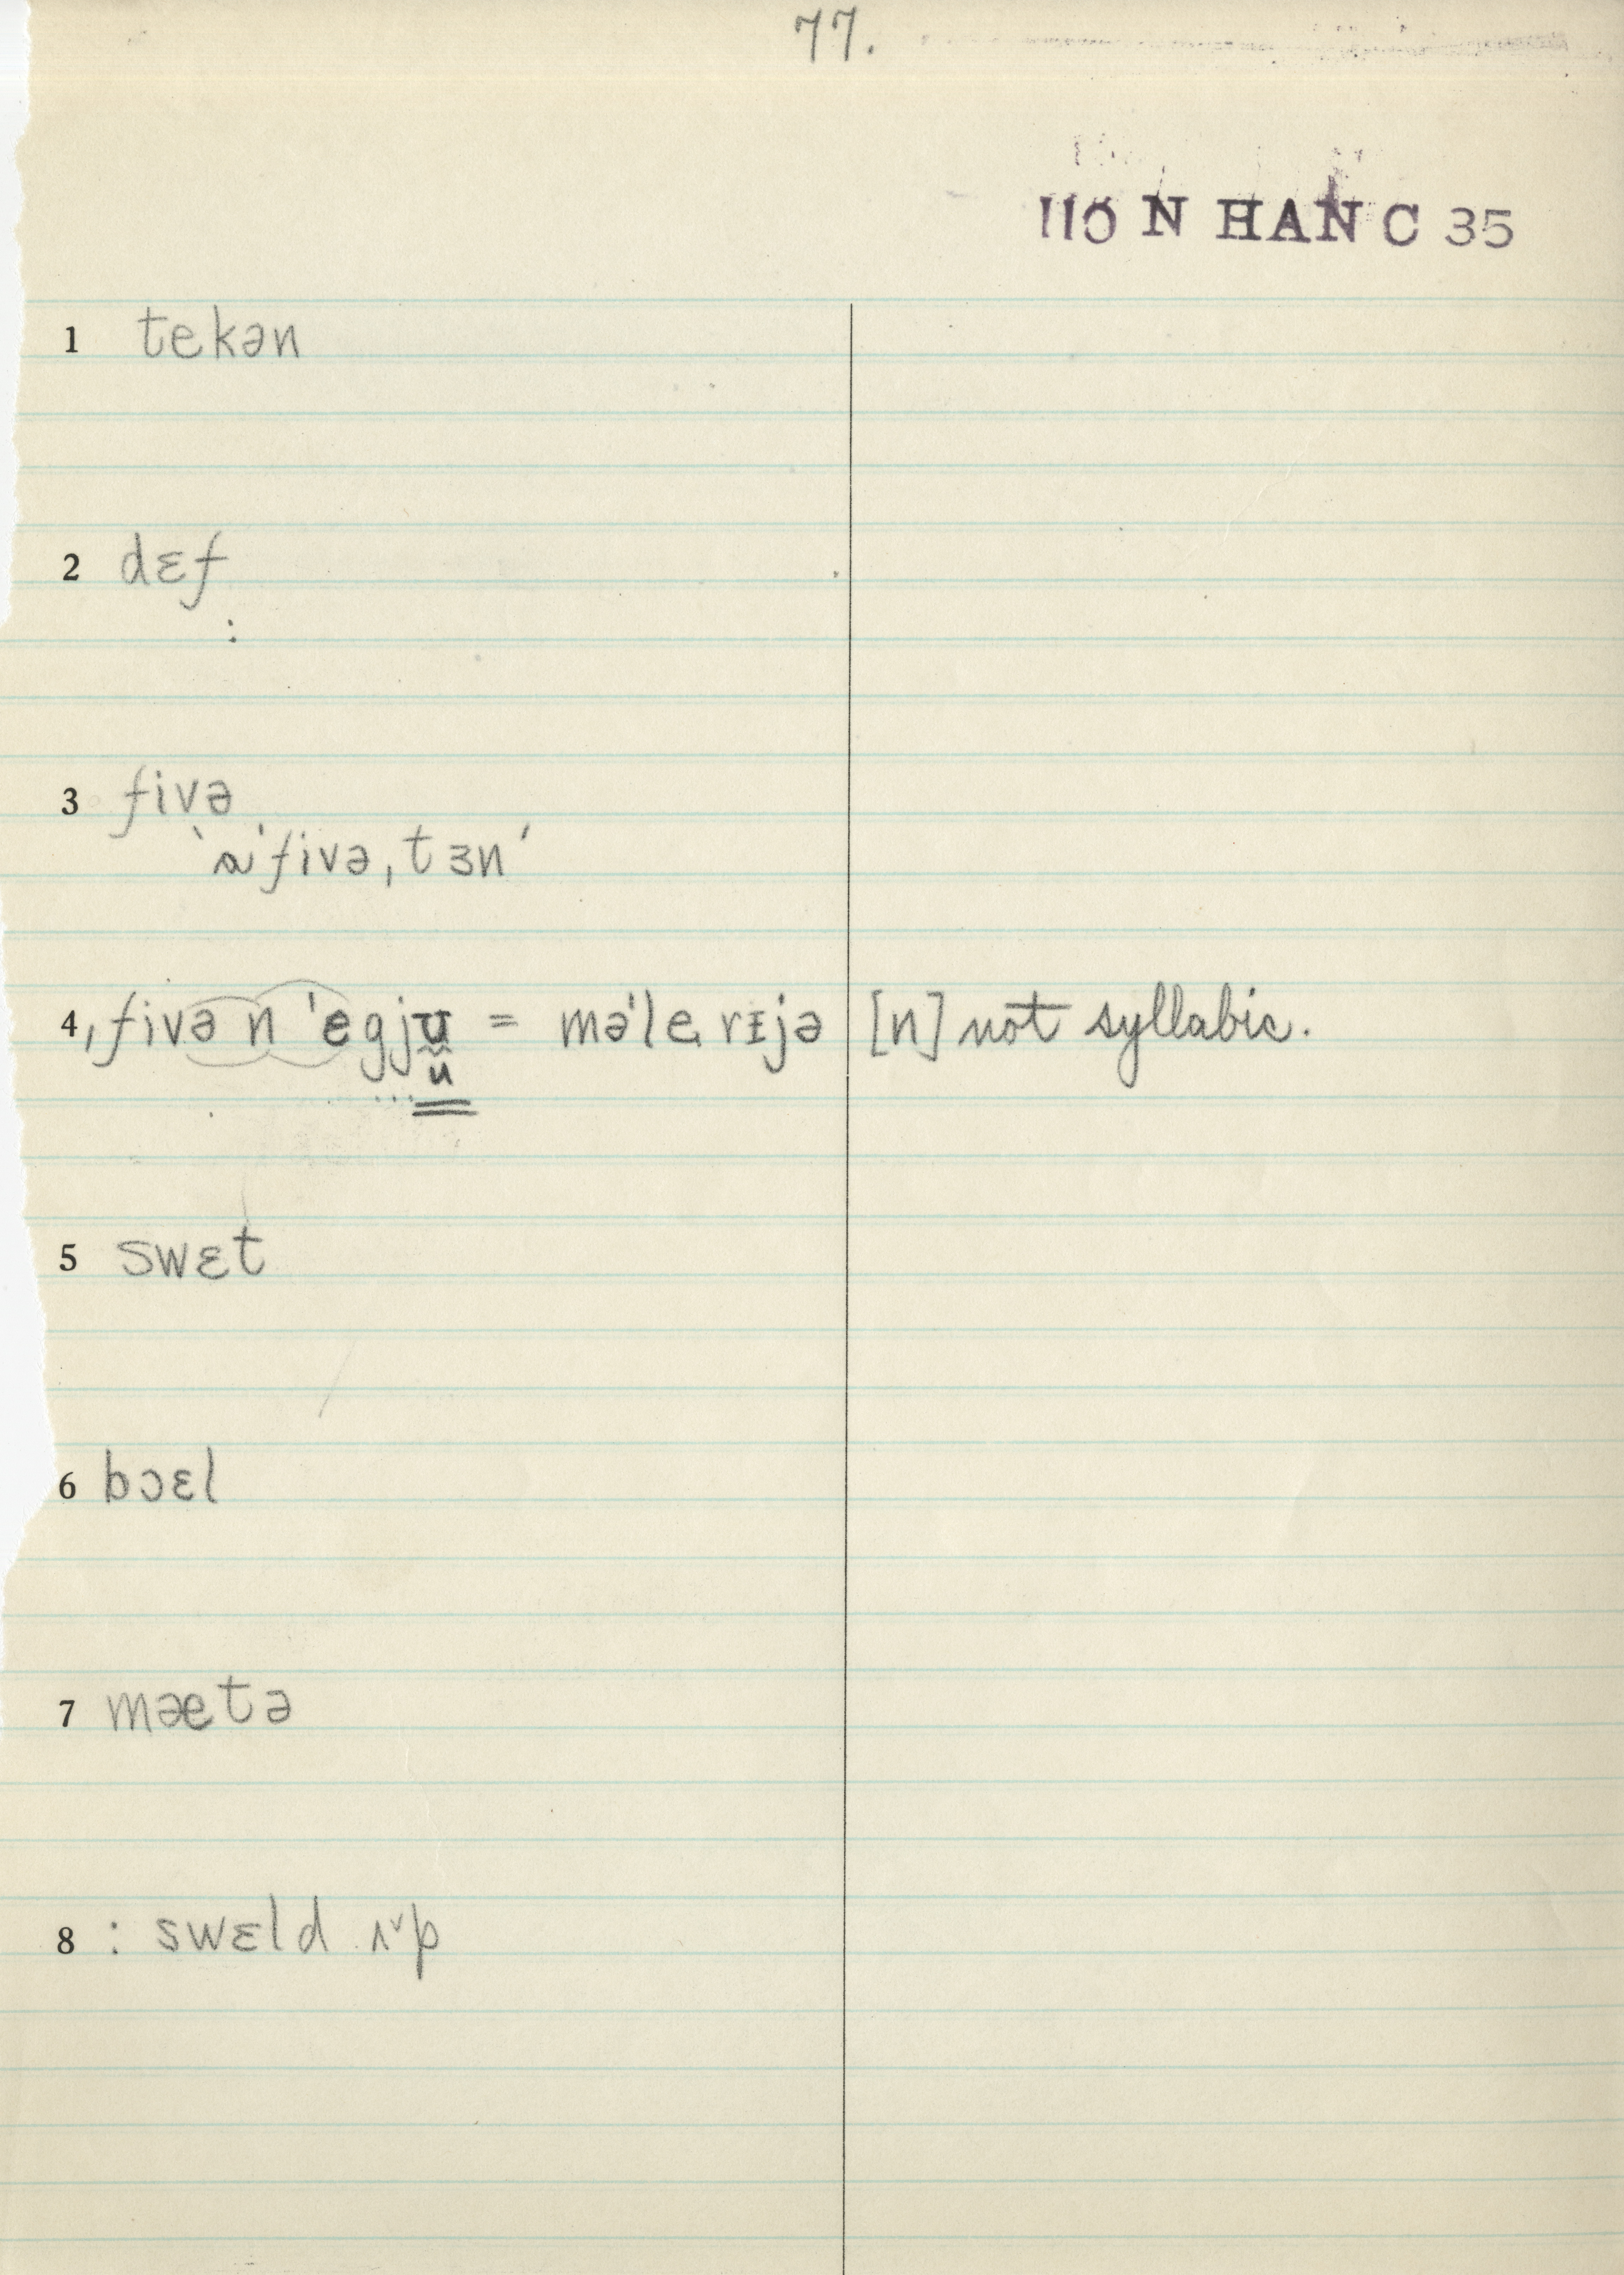 77.
110 N HAN C 35
1 tekən
2 dɛf
:
3 fivə
ˋɑˈfivə,tɜnˊ
4 ˌfivə n ˈegjʊ = məˈlerɪjə [n] not syllabic.
...u
5 swɛt
6 bɔɛl
7 mætə
8 : swɛld ʌ˅p